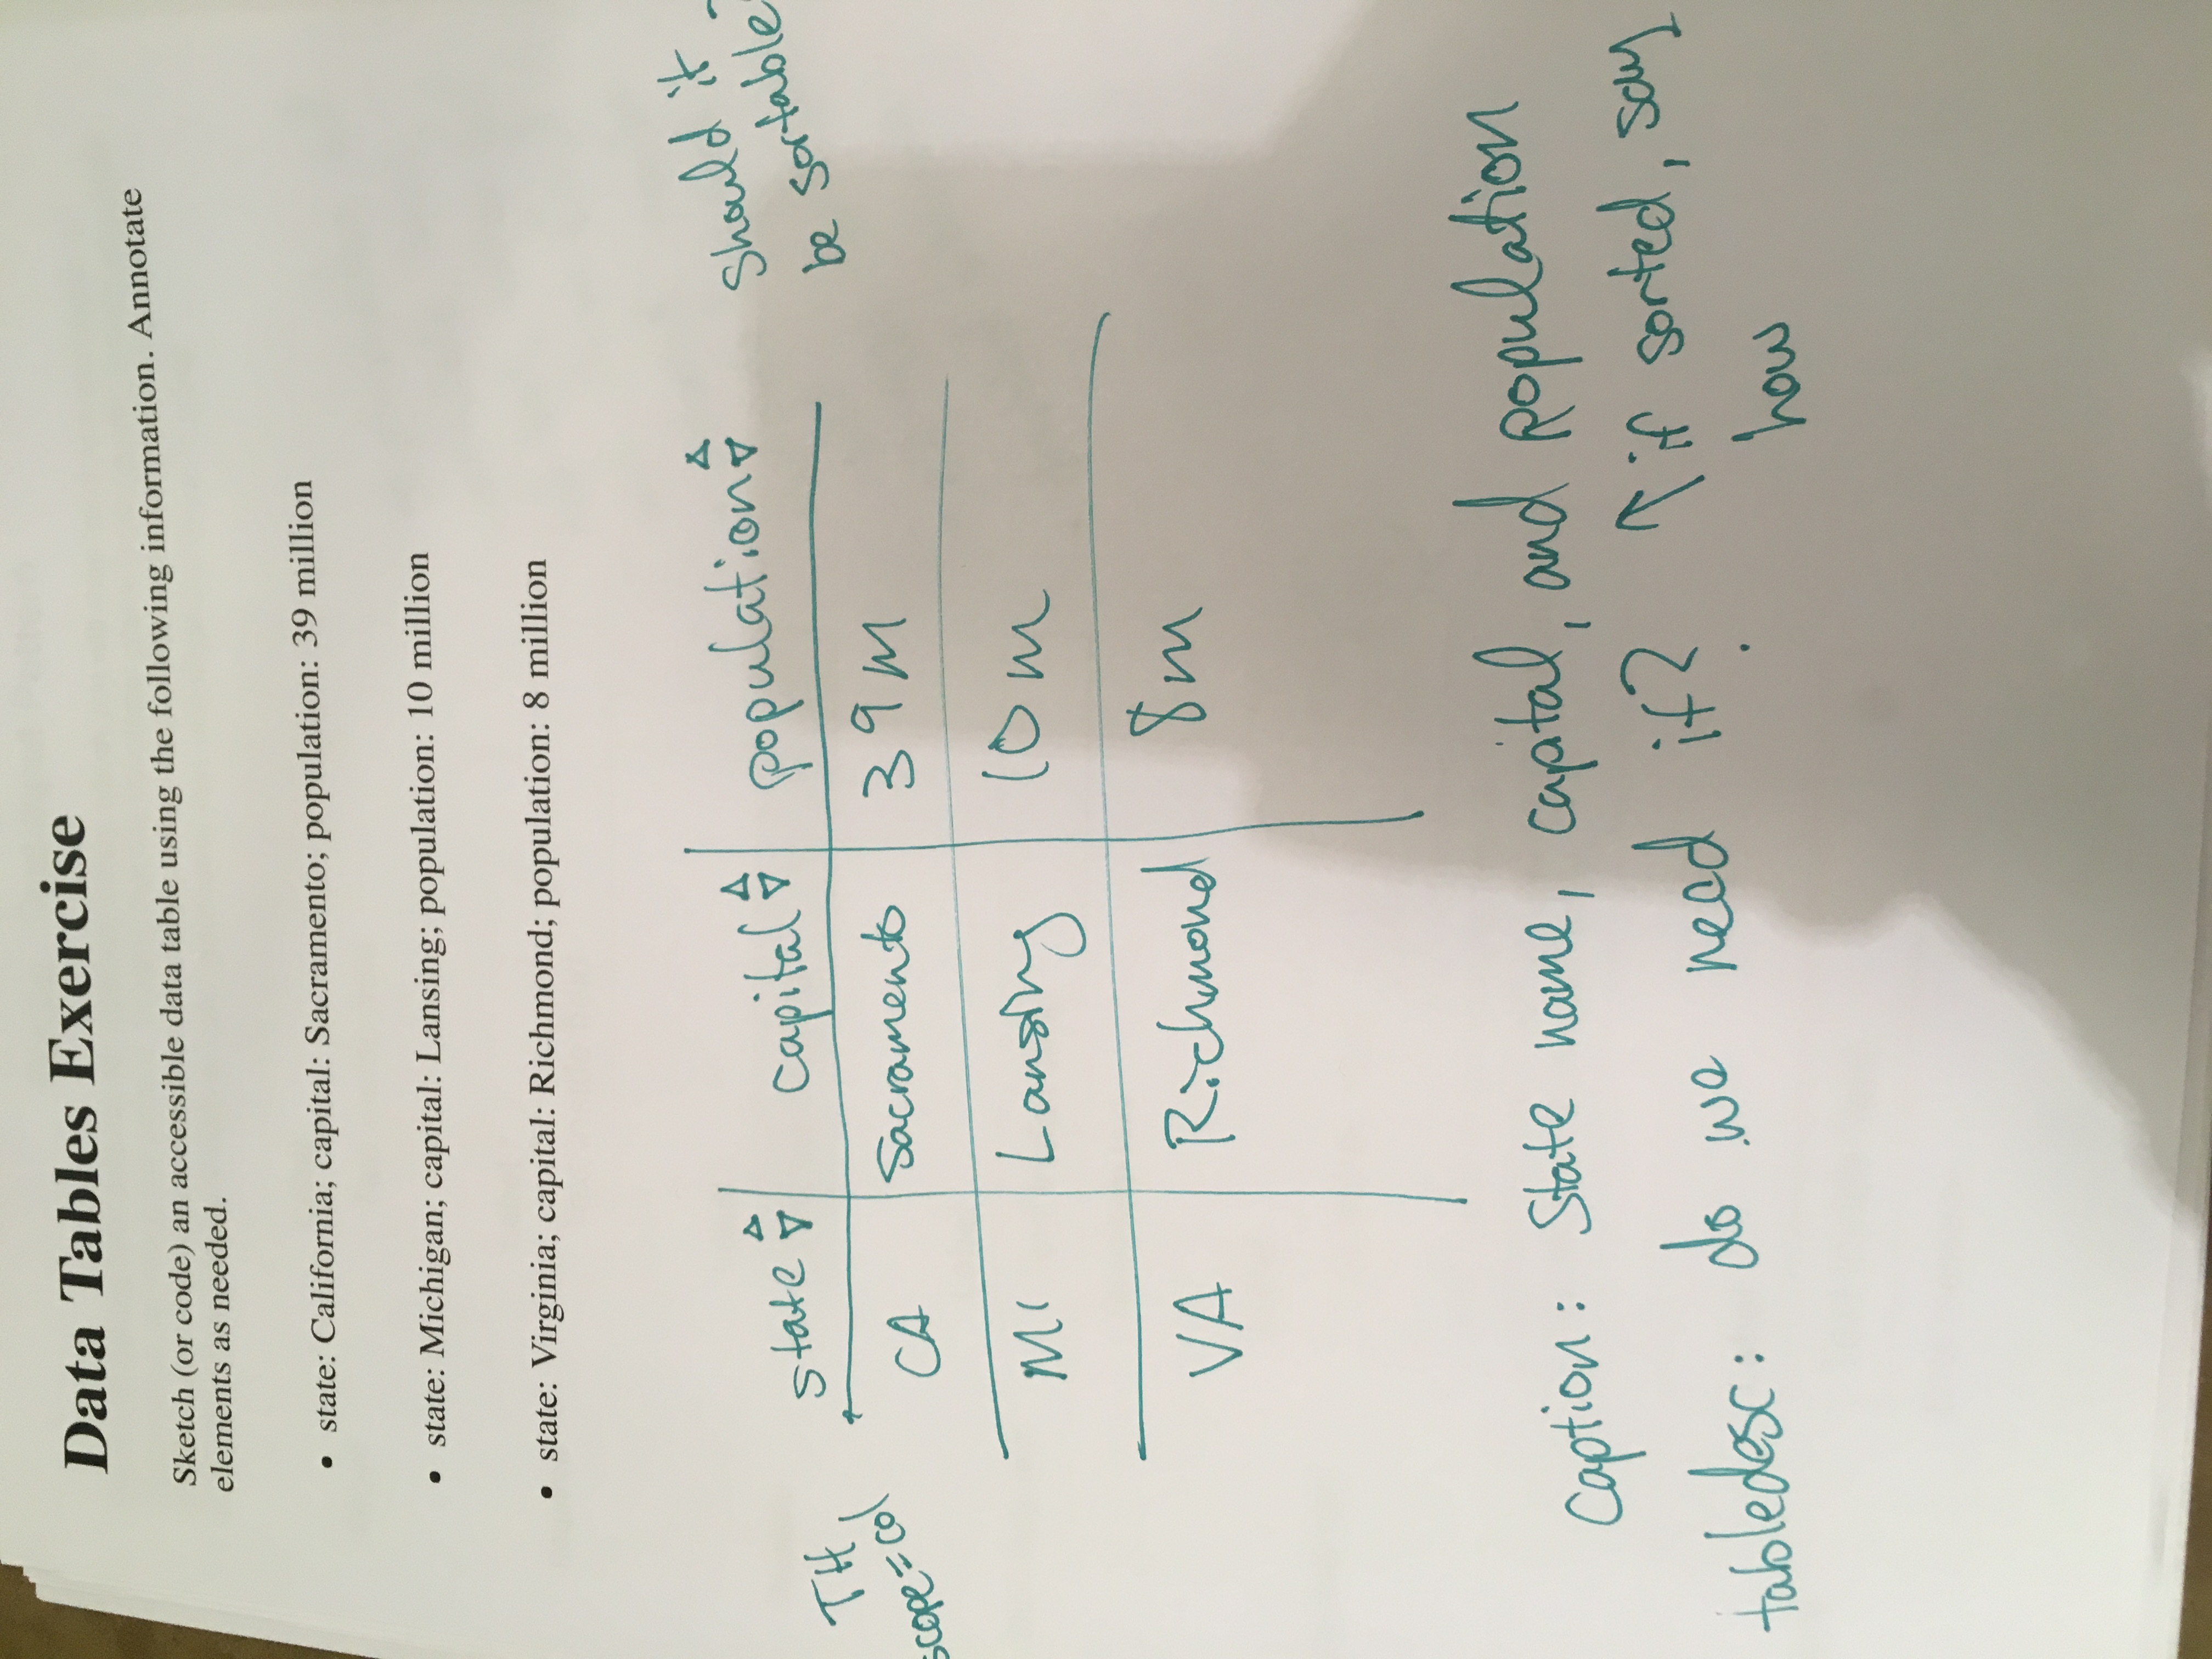 Data Tables Exercise
Sketch (or code) an accessible data table using the following information. Annotate
elements as needed.
• state: California; capital: Sacramento; population: 39 million
• state: Michigan; capital: Lansing; population: 10 million
• state: Virginia; capital: Richmond; population: 8 million
should it
be sortable
state capital population
TH,
scope=col
CA Sacramento 39M
MI Lansing 10m
VA Richmond 8m
Caption: State name, capital, and population
tabledesc: do we need it? ↑ if sorted, say
how